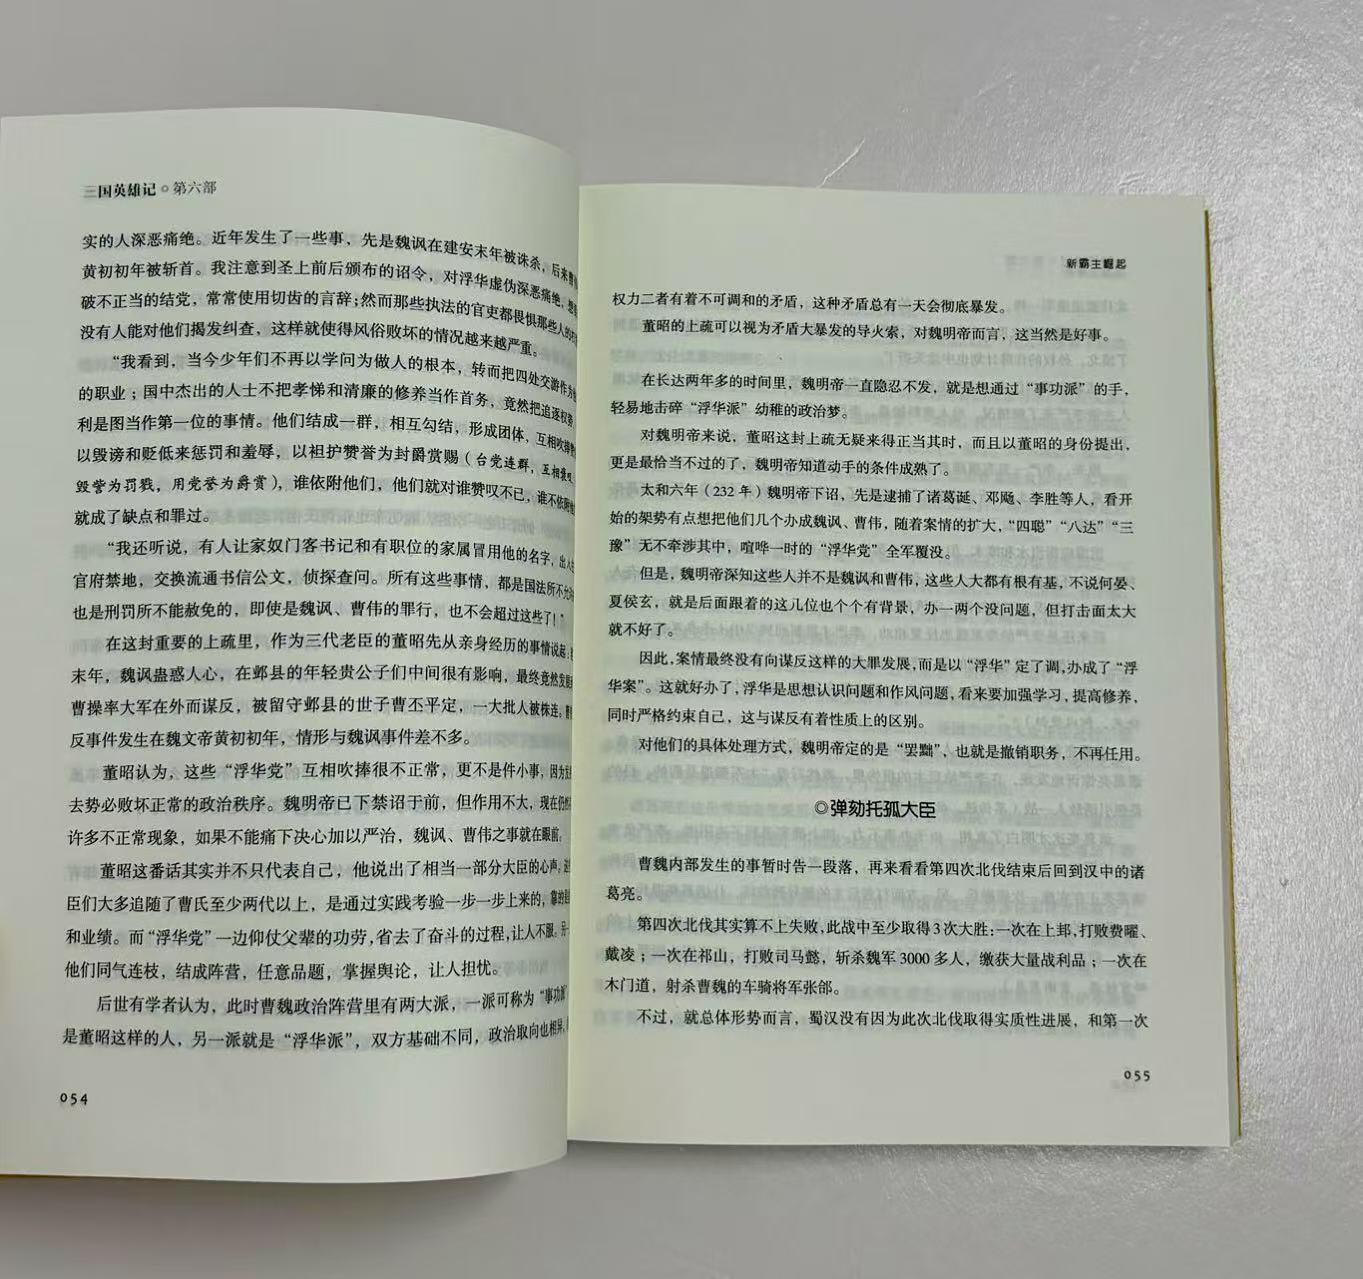 三国英雄记◎第六部
实的人深恶痛绝。近年发生了一些事，先是魏讽在建安末年被诛杀，后来曹
黄初初年被斩首。我注意到圣上前后颁布的诏令，对浮华虚伪深恶痛绝，想
破不正当的结党，常常使用切齿的言辞；然而那些执法的官吏都畏惧那些人的
没有人能对他们揭发纠查，这样就使得风俗败坏的情况越来越严重。
“我看到，当今少年们不再以学问为做人的根本，转而把四处交游作为
的职业；国中杰出的人士不把孝悌和清廉的修养当作首务，竟然把追逐权势
利是图当作第一位的事情。他们结成一群，相互勾结，形成团体，互相吹捧
以毁谤和贬低来惩罚和羞辱，以袒护赞誉为封爵赏赐（合党连群，互相褒
毁訾为罚戮，用党誉为爵赏），谁依附他们，他们就对谁赞叹不已，谁不依附
就成了缺点和罪过。
“我还听说，有人让家奴门客书记和有职位的家属冒用他的名字，出入
官府禁地，交换流通书信公文，侦探查问。所有这些事情，都是国法所不允
也是刑罚所不能赦免的，即使是魏讽、曹伟的罪行，也不会超过这些了！”
在这封重要的上疏里，作为三代老臣的董昭先从亲身经历的事情说起：
末年，魏讽蛊惑人心，在邺县的年轻贵公子们中间很有影响，最终竟然发展
曹操率大军在外而谋反，被留守邺县的世子曹丕平定，一大批人被株连。
反事件发生在魏文帝黄初初年，情形与魏讽事件差不多。
董昭认为，这些“浮华党”互相吹捧很不正常，更不是件小事，因为
去势必败坏正常的政治秩序。魏明帝已下禁诏于前，但作用不大，现在仍然
许多不正常现象，如果不能痛下决心加以严治，魏讽、曹伟之事就在眼前。
董昭这番话其实并不只代表自己，他说出了相当一部分大臣的心声，这
臣们大多追随了曹氏至少两代以上，是通过实践考验一步一步上来的，靠的是
和业绩。而“浮华党”一边仰仗父辈的功劳，省去了奋斗的过程，让人不服；另一
他们同气连枝，结成阵营，任意品题，掌握舆论，让人担忧。
后世有学者认为，此时曹魏政治阵营里有两大派，一派可称为“事功派”
是董昭这样的人，另一派就是“浮华派”，双方基础不同，政治取向也相异，
054
新霸主崛起
权力二者有着不可调和的矛盾，这种矛盾总有一天会彻底暴发。
董昭的上疏可以视为矛盾大暴发的导火索，对魏明帝而言，这当然是好事。
在长达两年多的时间里，魏明帝一直隐忍不发，就是想通过“事功派”的手，
轻易地击碎“浮华派”幼稚的政治梦。
对魏明帝来说，董昭这封上疏无疑来得正当其时，而且以董昭的身份提出，
更是最恰当不过的了，魏明帝知道动手的条件成熟了。
太和六年（232 年）魏明帝下诏，先是逮捕了诸葛诞、邓飏、李胜等人，看开
始的架势有点想把他们几个办成魏讽、曹伟，随着案情的扩大，“四聪”“八达”“三
豫”无不牵涉其中，喧哗一时的“浮华党”全军覆没。
但是，魏明帝深知这些人并不是魏讽和曹伟，这些人大都有根有基，不说何晏、
夏侯玄，就是后面跟着的这几位也个个有背景，办一两个没问题，但打击面太大
就不好了。
因此，案情最终没有向谋反这样的大罪发展，而是以“浮华”定了调，办成了“浮
华案”。这就好办了，浮华是思想认识问题和作风问题，看来要加强学习，提高修养，
同时严格约束自己，这与谋反有着性质上的区别。
对他们的具体处理方式，魏明帝定的是“罢黜”，也就是撤销职务，不再任用。
◎弹劾托孤大臣
曹魏内部发生的事暂时告一段落，再来看看第四次北伐结束后回到汉中的诸
葛亮。
第四次北伐其实算不上失败，此战中至少取得3次大胜：一次在上邽，打败费曜、
戴凌；一次在祁山，打败司马懿，斩杀魏军3000多人，缴获大量战利品；一次在
木门道，射杀曹魏的车骑将军张郃。
不过，就总体形势而言，蜀汉没有因为此次北伐取得实质性进展，和第一次
055